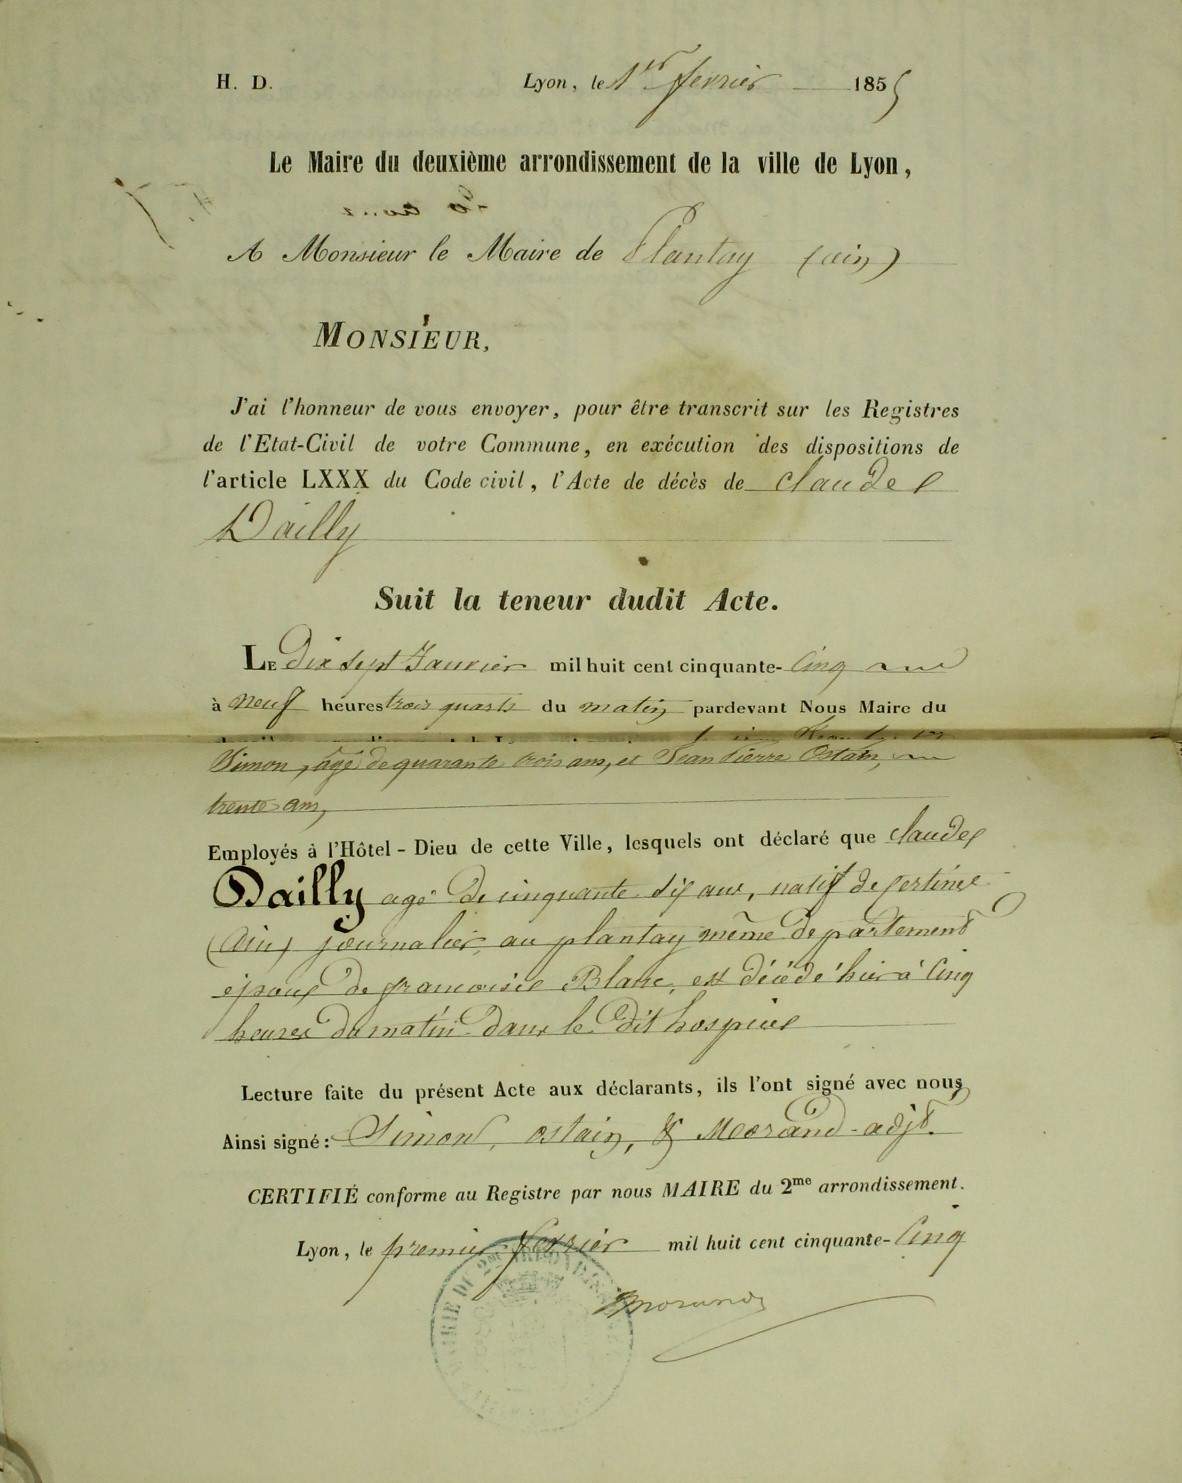 H. D. Lyon, le 1er fevrier 1855
Le Maire du deuxième arrondissement de la ville de Lyon,
A Monsieur le Maire de Plantay (ain)
MONSIEUR,
J'ai l'honneur de vous envoyer, pour être transcrit sur les Registres
de l'Etat-Civil de votre Commune, en exécution des dispositions de
l'article LXXX du Code civil, l'Acte de décès de claude
Dailly
Suit la teneur dudit Acte.
LE Dix sept Janvier mil huit cent cinquante- cinq
à neuf heures trois quarts du matin, pardevant Nous Maire du
Simon, âgé de quarante trois ans, et Jean Pierre Ostain,
trente ans,
Employés à l'Hôtel-Dieu de cette Ville, lesquels ont déclaré que claude
Dailly agé De cinquante six ans, natif de
(Ain) journalier, au plantay même Departement
époux De françoise Blanc, est décédé hier à Cinq
heures Du matin Dans le Dit hospice
Lecture faite du présent Acte aux déclarants, ils l'ont signé avec nous,
Ainsi signé: Simon, ostain, & Morand adjt.
CERTIFIÉ conforme au Registre par nous MAIRE du 2me arrondissement.
Lyon, le premier fevrier mil huit cent cinquante- Cinq
Morand
MAIRIE DU 2me ARRONDISSEMENT